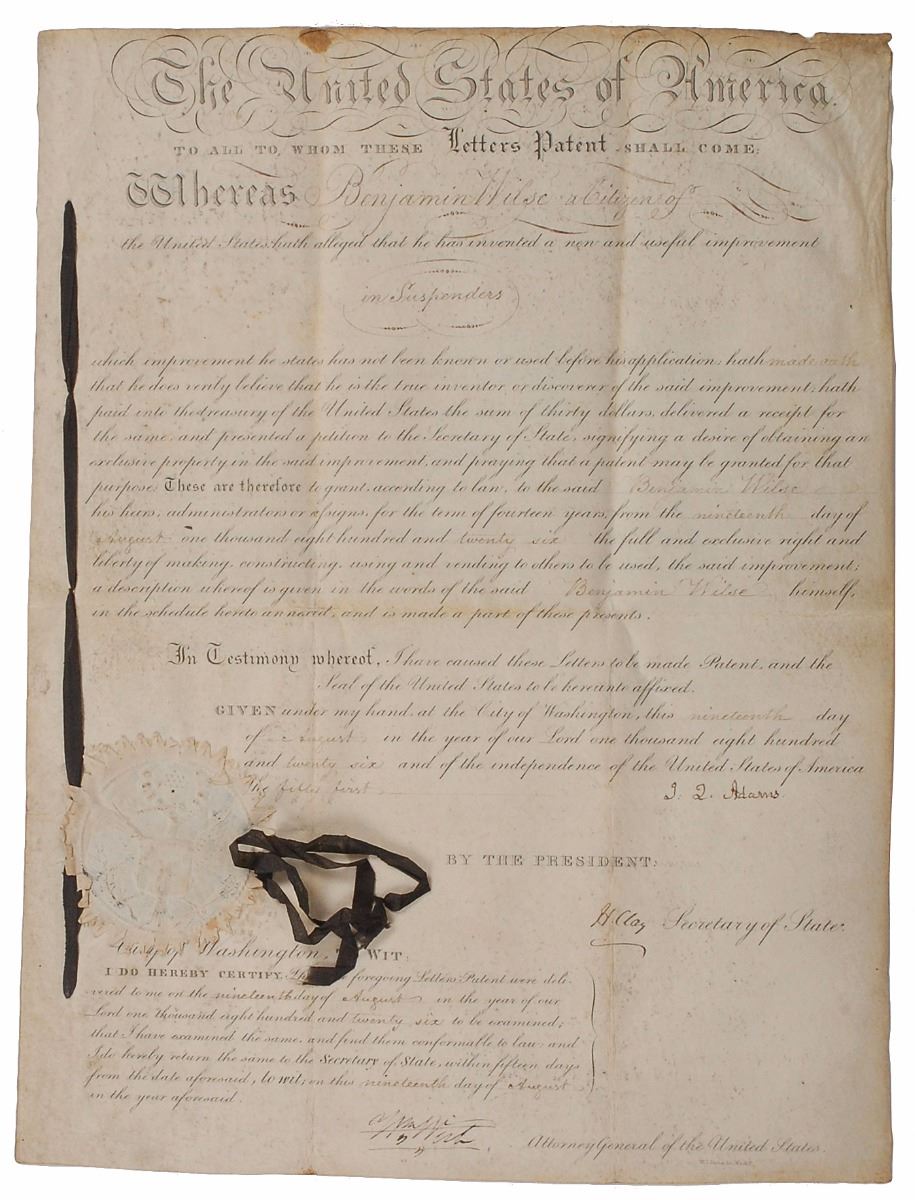 The United States of America.
TO ALL TO WHOM THESE Letters Patent SHALL COME:
Whereas Benjamin Wilse a Citizen of
the United States, hath alleged that he has invented a new and useful improvement
in Suspenders
which improvement he states has not been known or used before his application; hath made oath
that he does verily believe that he is the true inventor or discoverer of the said improvement; hath
paid into the treasury of the United States the sum of thirty dollars, delivered a receipt for
the same, and presented a petition to the Secretary of State, signifying a desire of obtaining an
exclusive property in the said improvement, and praying that a patent may be granted for that
purpose. These are therefore to grant, according to law, to the said Benjamin Wilse
his heirs, administrators or assigns, for the term of fourteen years, from the nineteenth day of
August one thousand eight hundred and twenty six the full and exclusive right and
liberty of making, constructing, using and vending to others to be used, the said improvement;
a description whereof is given in the words of the said Benjamin Wilse himself,
in the schedule hereto annexed, and is made a part of these presents.
In Testimony whereof, I have caused these Letters to be made Patent, and the
Seal of the United States to be hereunto affixed.
GIVEN under my hand, at the City of Washington, this nineteenth day
of August in the year of our Lord one thousand eight hundred
and twenty six and of the independence of the United States of America
The fifty first.
J. Q. Adams
BY THE PRESIDENT:
H. Clay Secretary of State.
City of Washington, TO WIT:
I DO HEREBY CERTIFY, foregoing Letters Patent were deli-
vered to me on the nineteenth day of August in the year of our
Lord one thousand eight hundred and twenty six to be examined;
that I have examined the same, and find them conformable to law; and
I do hereby return the same to the Secretary of State, within fifteen days
from the date aforesaid, to wit; on this nineteenth day of August
in the year aforesaid.
Wm Wirt
Attorney General of the United States.